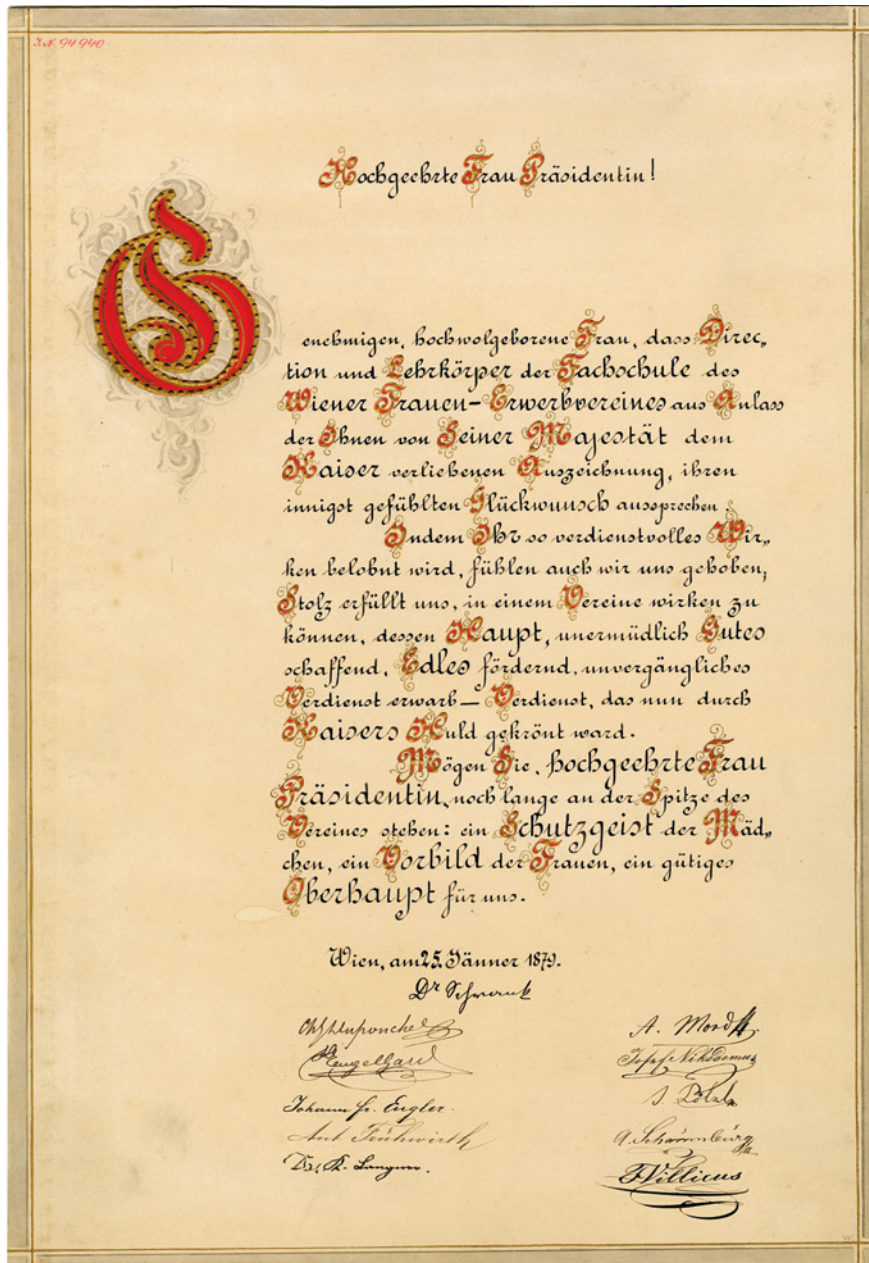 J.N. 94940
Hochgeehrte Frau Präsidentin!
Genehmigen, hochwolgeborene Frau, dass Direc„
tion und Lehrkörper der Fachschule des
Wiener Frauen-Erwerbvereines aus Anlass
der Ihnen von Seiner Majestät dem
Kaiser verliehenen Auszeichnung, ihren
innigst gefühlten Glückwunsch aussprechen.
Indem Ihr so verdienstvolles Wir„
ken belohnt wird, fühlen auch wir uns gehoben;
Stolz erfüllt uns, in einem Vereine wirken zu
können, dessen Haupt, unermüdlich Gutes
schaffend, Edles fördernd, unvergängliches
Verdienst erwarb — Verdienst, das nun durch
Kaisers Huld gekrönt ward.
Mögen Sie, hochgeehrte Frau
Präsidentin, noch lange an der Spitze des
Vereines stehen: ein Schutzgeist der Mäd„
chen, ein Vorbild der Frauen, ein gütiges
Oberhaupt für uns.
Wien, am 25. Jänner 1879.
Dr Schrank
A. Mord
Engelhard
Josef Nikodemus
Johann Fr. Engler.
Ant Frühwirth
Dr. K. Langer.
Villicus